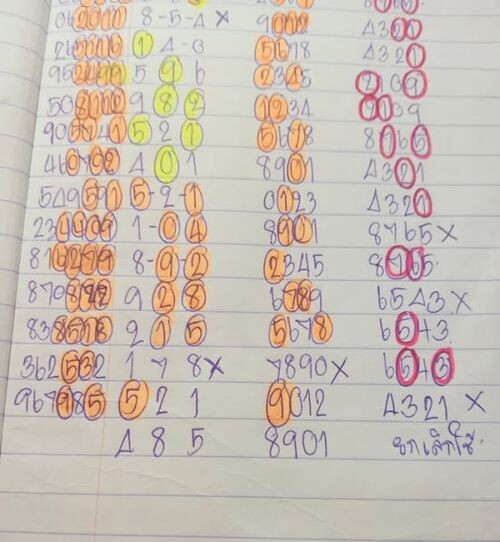 8-5-4 X 9012 4321
1 4-0 5678 4321
952499 5 9 6 2345 2109
508112 9 8 2 1234 2109
905741 5 2 1 5678 8765
460702 4 0 1 8901 4321
549591 5-2-1 0123 4321
1-0 4 8901 8765 X
816279 8-9-2 2345 8765
9 2 8 6789 6543 X
838518 2 1 5 5678 6543
362532 1 7 8 X 7890 X 6543
967985 5 2 1 9012 4321 X
4 8 5 8901 ยกเลิกใช้